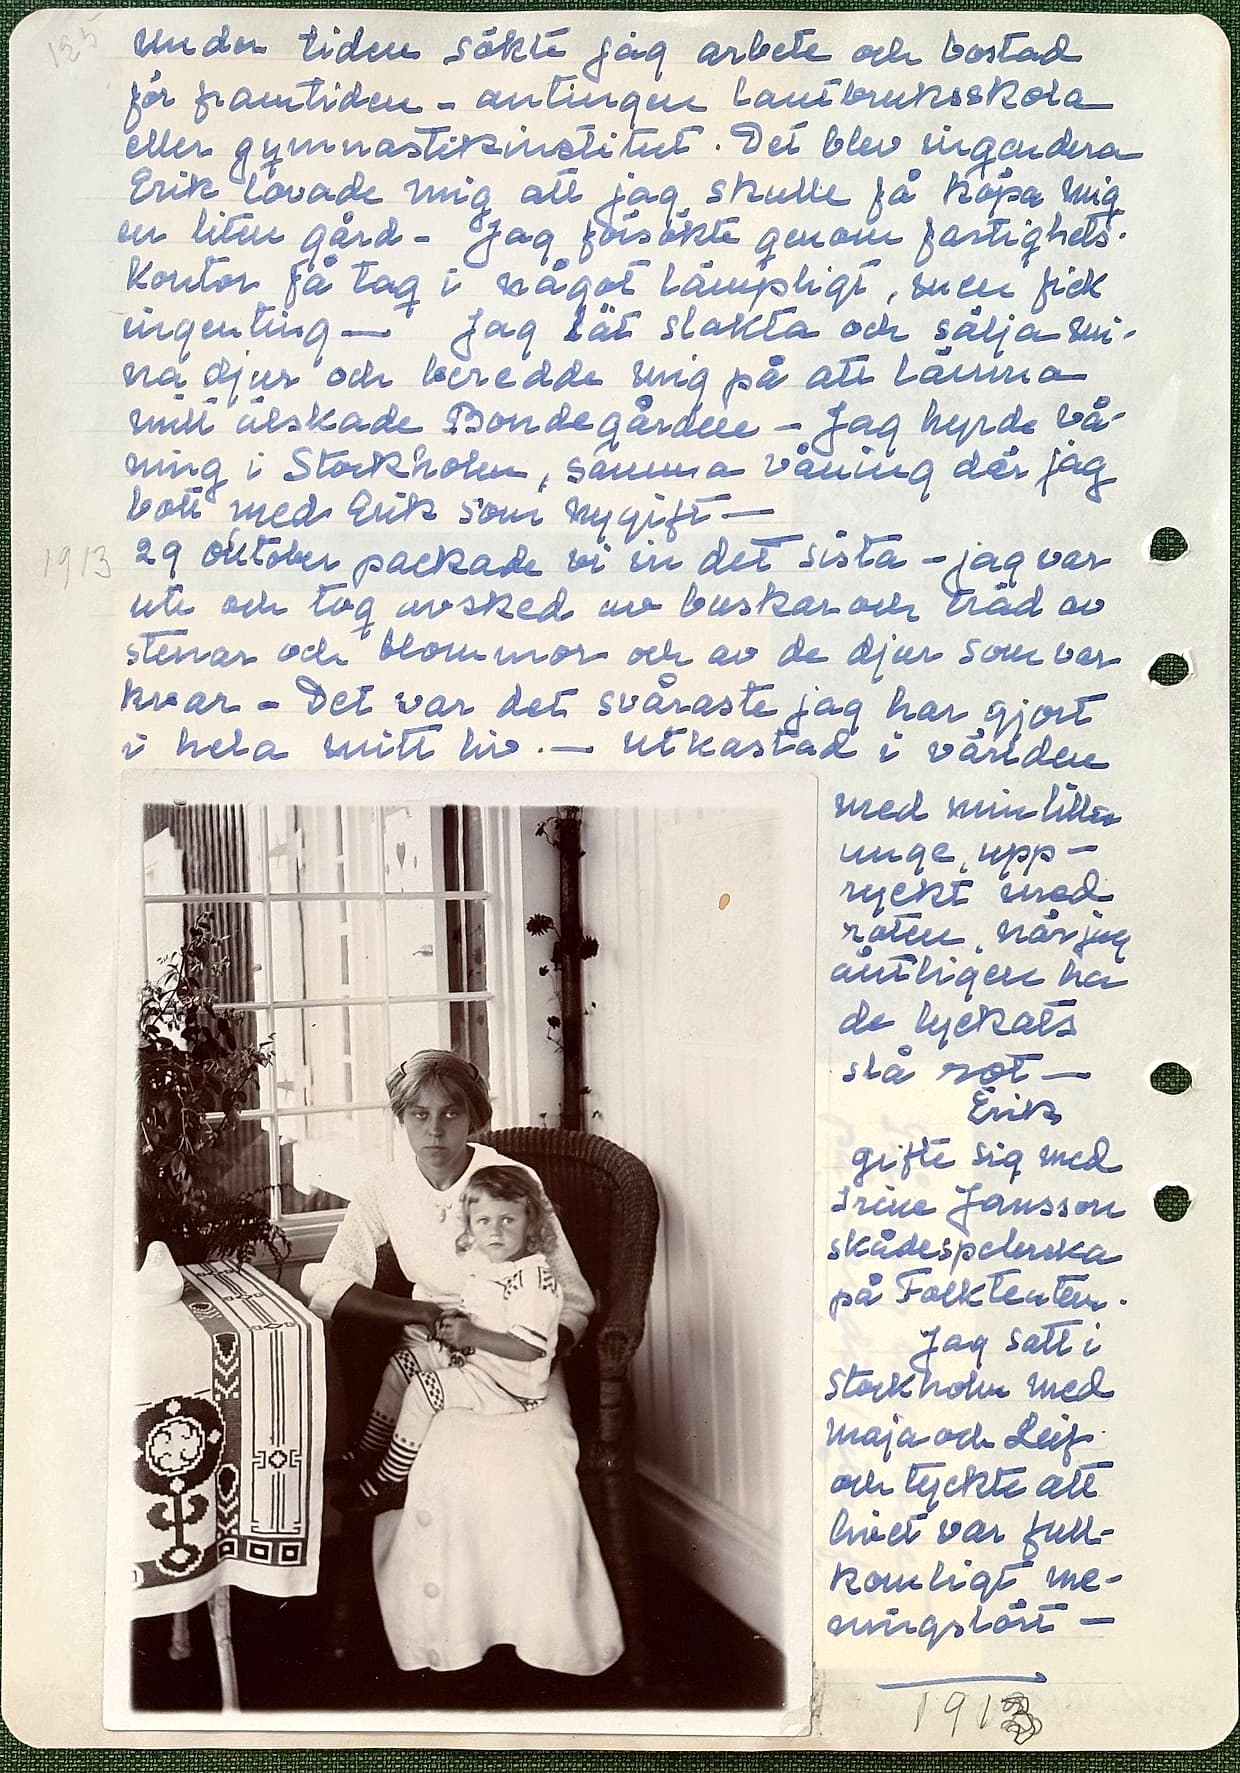 125
Under tiden sökte jag arbete och bostad
för framtiden – antingen lantbruksskola
eller gymnastikinstitut. Det blev ingendera
Erik lovade mig att jag skulle få köpa mig
en liten gård – Jag försökte genom fastighets-
kontor få tag i något lämpligt, men fick
ingenting — Jag lät slakta och sälja mi-
na djur och beredde mig på att lämna
mitt älskade Bondegården – Jag hyrde vå-
ning i Stockholm, samma våning där jag
bott med Erik som nygift —
1913 29 oktober packade vi in det sista – jag var
ute och tog avsked av buskar och träd av
stenar och blommor och av de djur som var
kvar – Det var det svåraste jag har gjort
i hela mitt liv. — utkastad i världen
med min lilla
unge, upp-
ryckt med
roten, när jag
äntligen ha
de lyckats
slå rot —
Erik
gifte sig med
Irine Jansson
skådespelerska
på Folkteatern.
Jag satt i
Stockholm med
Maja och Leif
och tyckte att
livet var full-
komligt me-
ningslöst —
1913